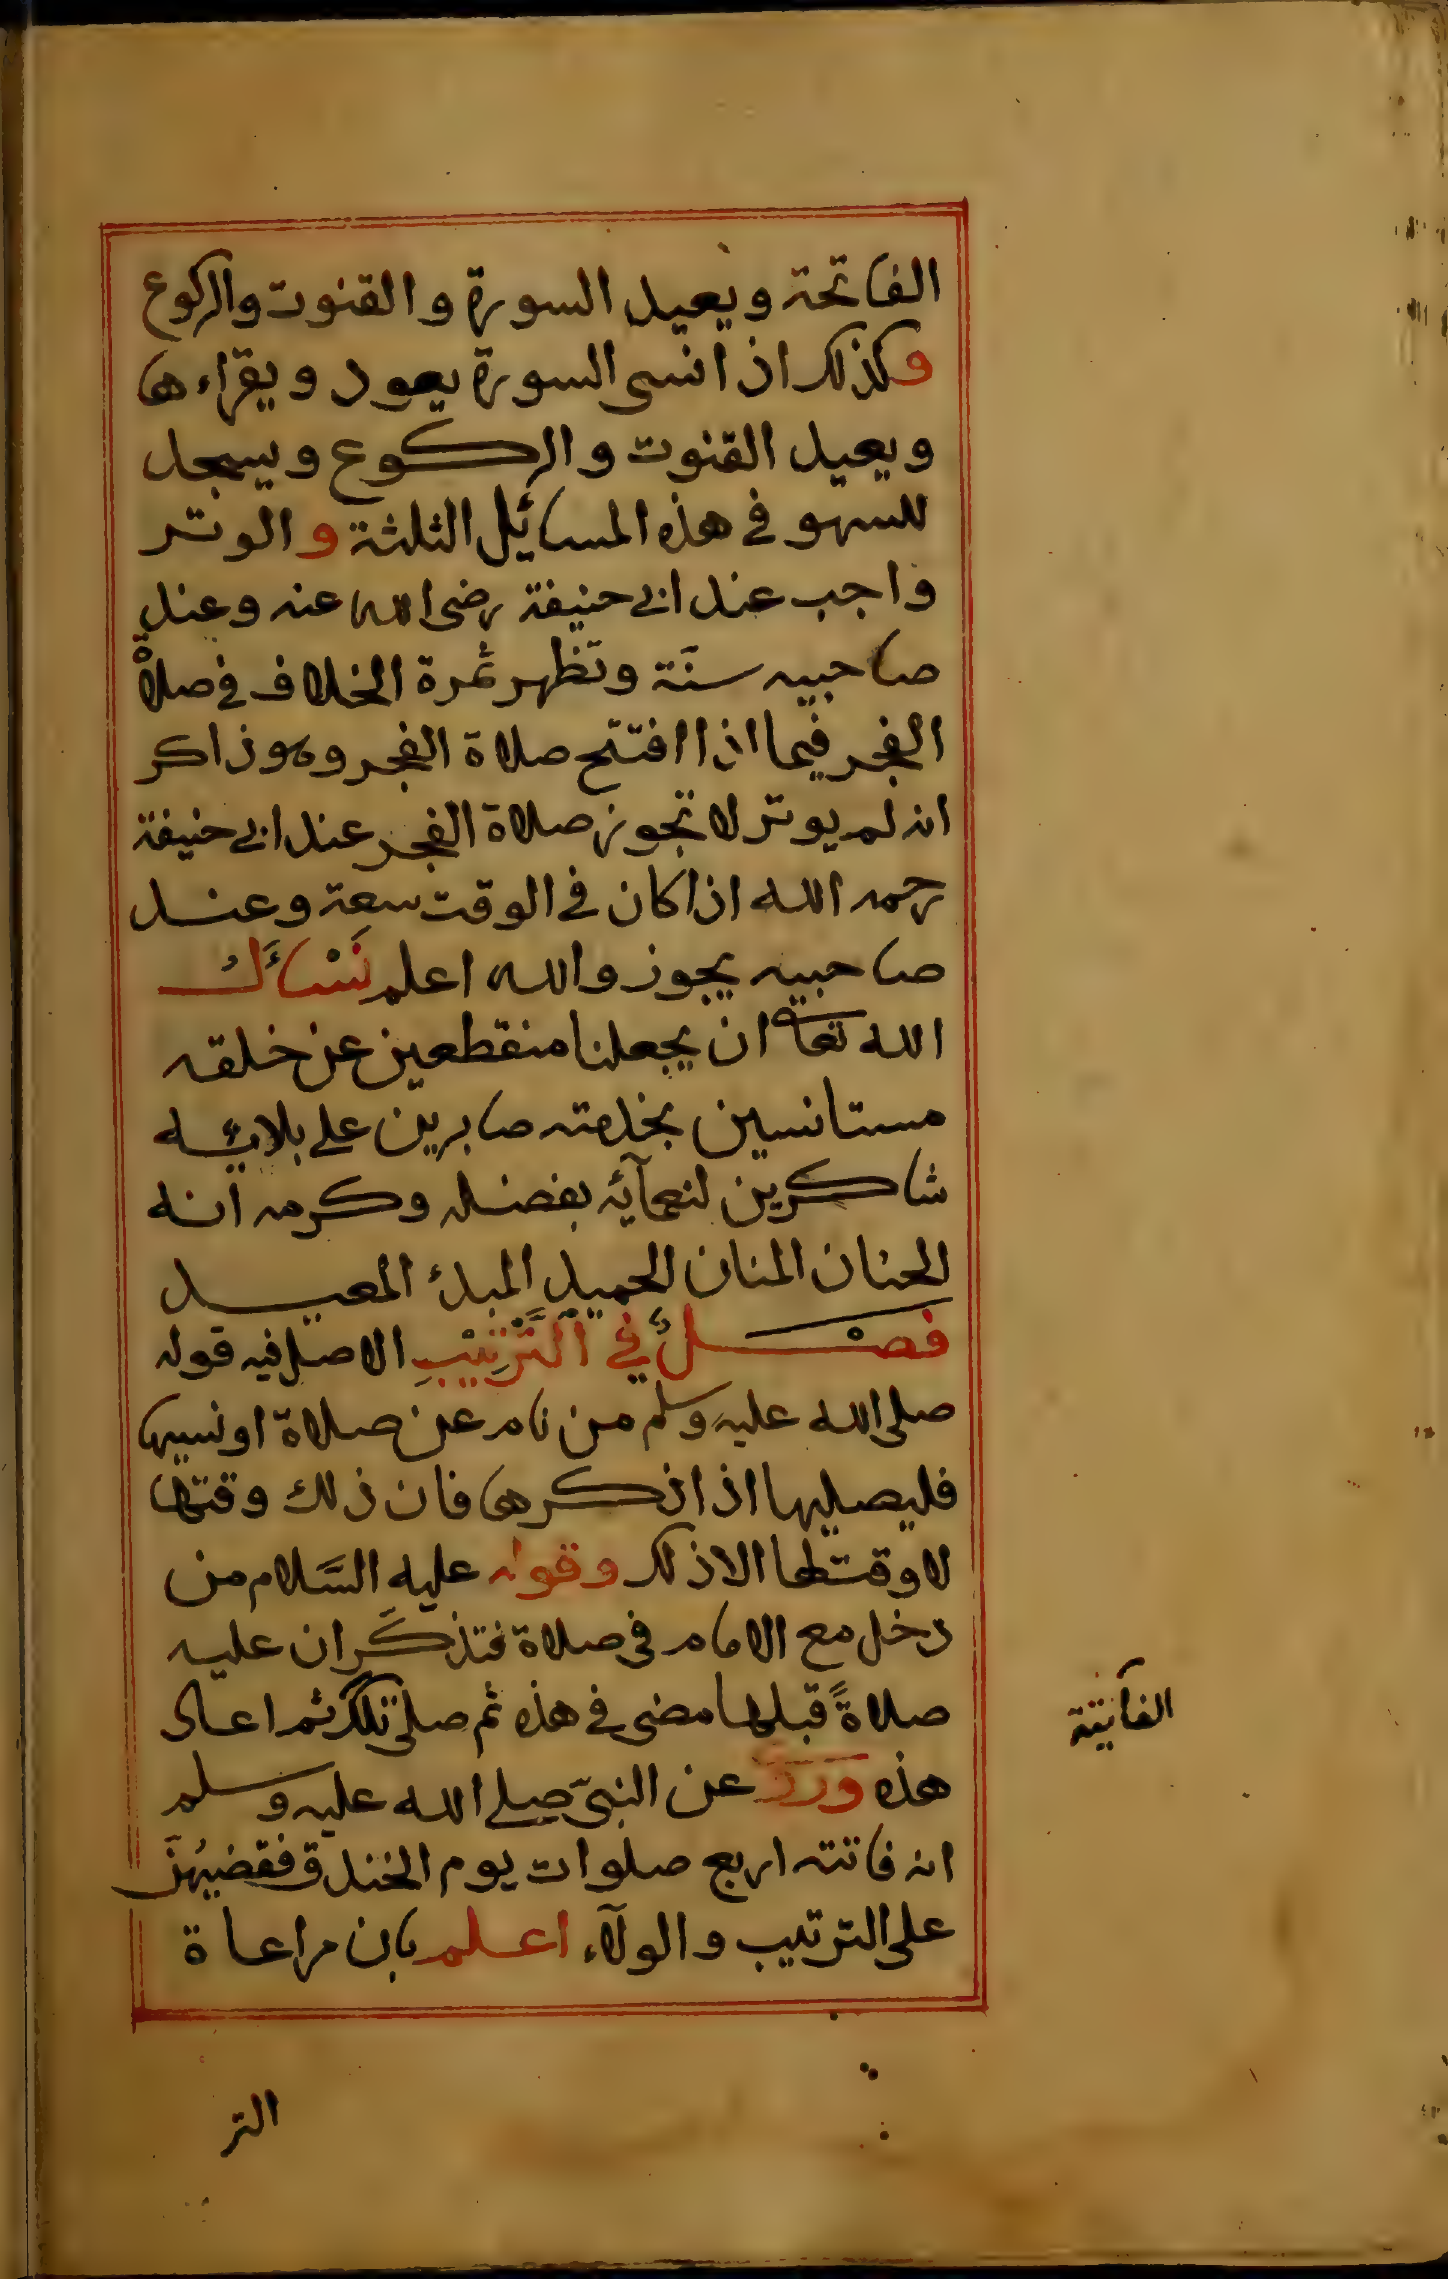 الفاتحة ويعيد السورة والقنوت والركوع
وكذلك اذا نسى السورة يعود ويقراءها
ويعيد القنوت والركوع ويسجد
للسهو في هذه المسائل الثلثة والوتر
واجب عند ابي حنيفة رضى الله عنه وعند
صاحبيه سنّة وتظهر ثمرة الخلاف في صلاة
الفجر فيما اذا افتتح صلاة الفجر وهو ذاكر
انه لم يوتر لا تجوز صلاة الفجر عند ابي حنيفة
رحمه الله اذا كان في الوقت سعة وعند
صاحبيه يجوز والله اعلم نَسْاَءَلُ
الله تعا ان يجعلنا منقطعين عن خلقه
مستانسين بخدمته صابرين على بلائه
شاكرين لنعمآئه بفضله وكرمه انه
الحنان المنان الحميد المبدئ المعيد
فصْلٌ في اَلتَّرْتِيْبِ الاصل فيه قوله
صلى الله عليه وسلم من نام عن صلاة او نسيها
فليصليها اذا ذكرها فان ذلك وقتها
لا وقت لها الا ذلك وقوله عليه السَّلام من
دخل مع الامام في صلاة فتذكَّر ان عليه
صلاةً قبلها مضى في هذه ثم صلى تلك ثم اعاد
هذه وَرَدَ عن النبىّ صلى الله عليه وسلم
انه فاتته اربع صلوات يوم الخندق فقضيهُنَّ
على الترتيب والولآء اعلم بان مراعاة
الفائتة
التر